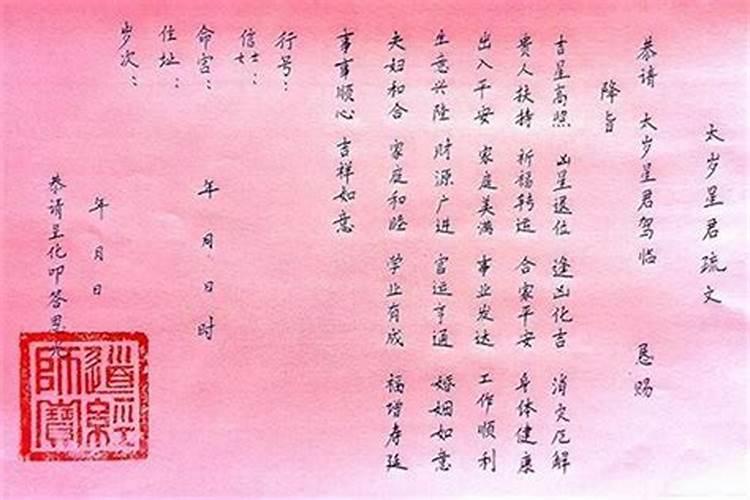 太岁星君疏文
恭请 太岁星君驾临 恳赐
降旨
吉星高照 凶星退位 逢凶化吉 消灾厄解
贵人扶持 祈福转运 合家平安 身体健康
出入平安 家庭美满 事业发达 工作顺利
生意兴隆 财源广进 官运亨通 婚姻如意
夫妇和合 家庭和睦 学业有成 福增寿延
事事顺心 吉祥如意
行号：
信士：
命宫： 年 月 日 时
住址：
岁次： 年 月 日
恭请呈化叩答恩光
道經師寶